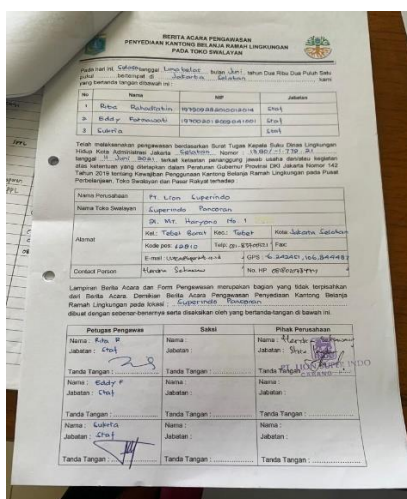 BERITA ACARA PENGAWASAN
PENYEDIAAN KANTONG BELANJA RAMAH LINGKUNGAN
PADA TOKO SWALAYAN
Pada hari ini, Selasa tanggal Lima belas bulan Juni tahun Dua Ribu Dua Puluh Satu
pukul bertempat di Jakarta Selatan kami
yang bertanda tangan dibawah ini :
No Nama NIP Jabatan
1 Staf
2 Eddy Staf
3 Sukrta Staf
Telah melaksanakan pengawasan berdasarkan Surat Tugas Kepala Suku Dinas Lingkungan
Hidup Kota Administrasi Jakarta Selatan Nomor :
tanggal 11 Juni 2021 terkait ketaatan penanggung jawab usaha dan/atau kegiatan
atas ketentuan yang ditetapkan dalam Peraturan Gubernur Provinsi DKI Jakarta Nomor 142
Tahun 2019 tentang Kewajiban Penggunaan Kantong Belanja Ramah Lingkungan pada Pusat
Perbelanjaan, Toko Swalayan dan Pasar Rakyat terhadap
Nama Perusahaan PT. Lion Superindo
Nama Toko Swalayan Superindo Pancoran
Alamat Jl. MT. Haryono No 1
Kel.: Tebet Barat Kec.: Tebet Kota: Jakarta Selatan
Kode pos: 12810 Telp: Fax:
E-mail : GPS :
Contact Person No. HP
Lampiran Berita Acara dan Form Pengawasan merupakan bagian yang tidak terpisahkan
dari Berita Acara. Demikian Berita Acara Pengawasan Penyediaan Kantong Belanja
Ramah Lingkungan pada lokasi : Superindo Pancoran
dibuat dengan sebenar-benarnya serta disaksikan oleh yang bertanda-tangan di bawah ini.
Petugas Pengawas Saksi Pihak Perusahaan
Nama : Rita P Nama : Nama :
Jabatan : Staf Jabatan : Jabatan :
Tanda Tangan : Tanda Tangan : Tanda Tangan
Nama : Eddy F Nama : Nama :
Jabatan : Staf Jabatan : Jabatan :
Tanda Tangan : Tanda Tangan : Tanda Tangan :
Nama : Sukrta Nama : Nama :
Jabatan : Staf Jabatan : Jabatan :
Tanda Tangan : Tanda Tangan : Tanda Tangan :